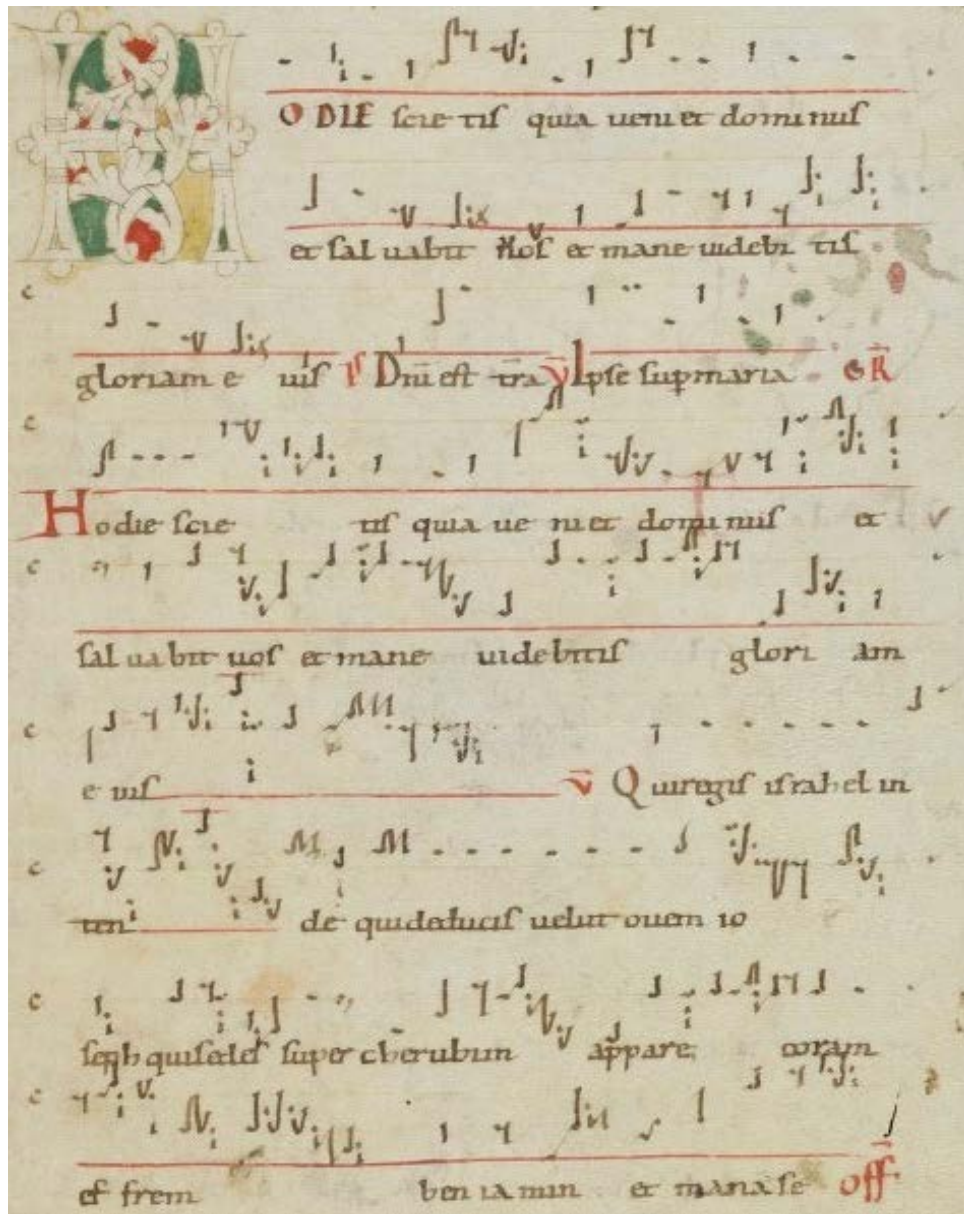 HODIE scietis quia veniet dominus
et saluabit nos et mane uidebitis
gloriam eius Ps Dnī est trā V Ipse sup maria GR
Hodie scietis quia ueniet dominus et
saluabit uos et mane uidebitis gloriam
eius V Qui regis israhel in
ten de qui deducis uelut ouem io
seph qui sedes super cherubim appare coram
effrem beniamin et manase Off